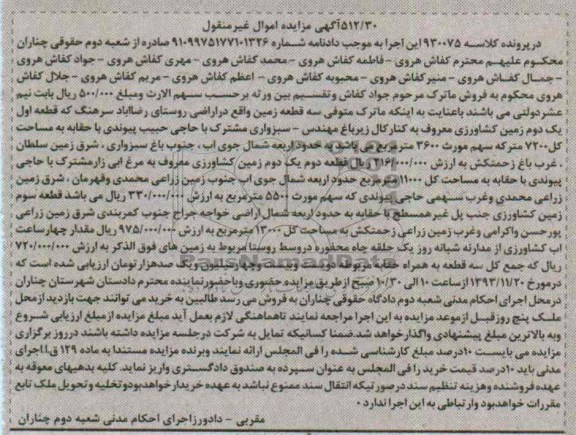 ۵۱۲/۳۰آگهی مزایده اموال غیرمنقول
درپرونده کلاسه ۹۳۰۰۷۵این اجرا به موجب دادنامه شماره ۹۱۰۹۹۷۵۱۷۷۱۰۱۳۲۶ صادره از شعبه دوم حقوقی چناران
محکوم علیهم محترم کفاش هروی - فاطمه کفاش هروی - محمد کفاش هروی - مهری کفاش هروی - جواد کفاش هروی
- جمال کفاش هروی - منیر کفاش هروی - محبوبه کفاش هروی - اعظم کفاش هروی - مریم کفاش هروی - جلال کفاش
هروی محکوم به فروش ماترک مرحوم جواد کفاش وتقسیم بین ورثه برحسب سهم الارث ومبلغ ۵۰۰/۰۰۰ ریال بابت نیم
عشردولتی می باشند باعنایت به اینکه ماترک متوفی سه قطعه زمین واقع دراراضی روستای رضااباد سرهنگ که قطعه اول
یک دوم زمین کشاورزی معروف به کنارکال زیرباغ مهندس - سبزواری مشترک با حاجی حبیب پیوندی با حقابه به مساحت
کل ۷۲۰۰ مترکه سهم مورث ۳۶۰۰ مترمربع می باشد، به حدود اربعه شمال جوی اب، جنوب باغ سبزواری، شرق زمین سلطان
، غرب باغ زحمتکش به ارزش ۲۱۶/۰۰۰/۰۰۰ ریال قطعه دوم یک دوم زمین کشاورزی معروف به مرغ ابی زارمشترک با حاجی
پیوندی با حقابه به مساحت کل ۱۱۰۰۰ مترمربع حدود اربعه شمال جوی اب جنوب زمین زراعی محمدی وقهرمان ، شرق زمین
زراعی محمدی وغرب سهمی حاجی پیوندی که سهم مورث ۵۵۰۰ مترمربع به ارزش ۳۳۰/۰۰۰/۰۰۰ ریال می باشد قطعه سوم
زمین کشاورزی جنب پل غیرهمسطح با حقابه به حدود اربعه شمال اراضی خواجه جراح جنوب کمربندی شرق زمین زراعی
پورحسن واکرامی وغرب زمین زراعی زحمتکش به مساحت کل ۱۳۰۰۰ مترمربع به ارزش ۹۷۵/۰۰۰/۰۰۰ ریال مقدار چهارساعت
اب کشاورزی از مدارنه شبانه روز یک حلقه چاه محفوره دروسط روستا مربوط به زمین های فوق الذکر به ارزش ۷۲۰/۰۰۰/۰۰۰
ریال که جمع کل سه قطعه به همراه حقابه مربوطه دویست وبیست وچهارمیلیون ویک صدهزارتومان ارزیابی شده است که
درمورخ ۱۳۹۳/۱۱/۲۰ ازساعت ۱۰ الی ۱۰/۳۰ صبح از طریق مزایده حضوری وباحضورنماینده محترم دادستان شهرستان چناران
درمحل اجرای احکام مدنی شعبه دوم دادگاه حقوقی چناران به فروش می رسد طالبین به خرید می توانند جهت بازدید از محل
ملک پنج روزقبل ازموعد مزایده به این اجرا مراجعه نمایند تاهماهنگی لازم بعمل آید مبلغ مزایده از مبلغ ارزیابی شروع
وبه بالاترین مبلغ پیشنهادی واگذارخواهد شد.ضمنا کسانیکه تمایل به شرکت درجلسه مزایده داشته باشند درروز برگزاری
مزایده می بایست ۱۰درصد مبلغ کارشناسی شده را فی المجلس ارائه نمایند وبرنده مزایده مستندا به ماده ۱۲۹ ق.ا.اجرای
مدنی باید ۱۰درصد قیمت خرید را فی المجلس به عنوان سپرده به صندوق دادگستری واریز نماید. کلیه بدهیهای معوقه به
عهده فروشنده وهزینه تنظیم سند درصورتیکه انتقال سند ممنوع نباشد به عهده خریدارخواهدبودتخلیه و تحویل ملک تابع
مقررات خواهدبود وارتباطی به این اجرا ندارد.
مقربی - دادورزاجرای احکام مدنی شعبه دوم چناران
ParsNamadData